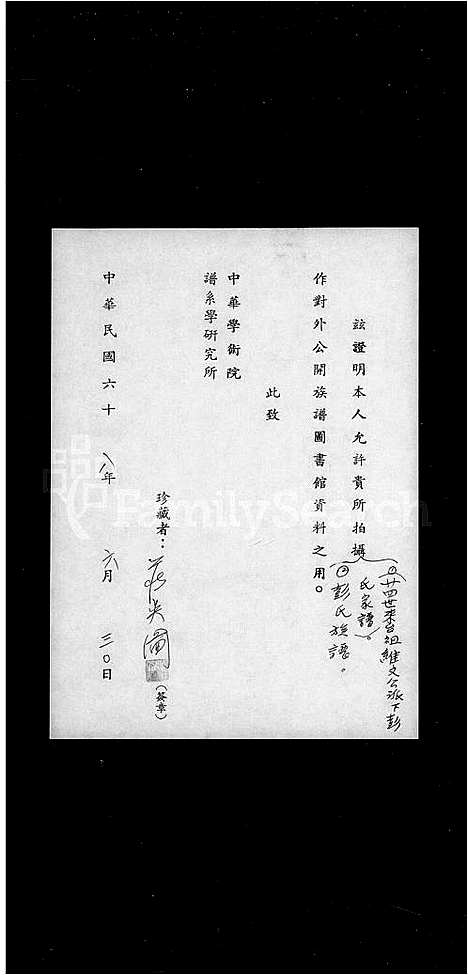 茲證明本人允許貴所拍攝
①廿四世來台祖維文公派下彭
氏家譜。
②彭氏族譜。
作對外公開族譜圖書館資料之用。
此致
中華學術院
譜系學研究所
珍藏者：
(簽章)
中華民國六十八年六月三〇日
FamilySearch